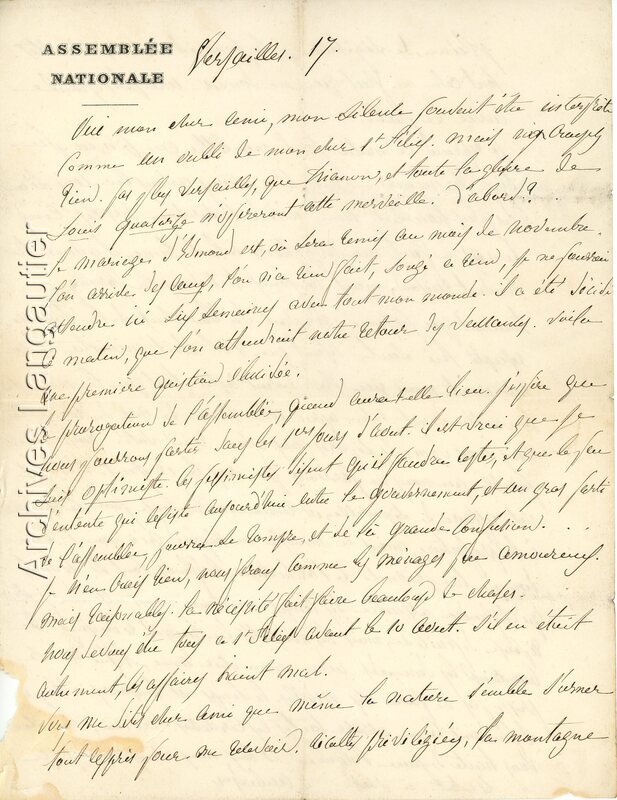 ASSEMBLÉE
NATIONALE
Versailles. 17.
mon cher ami, mon silence être interprété
comme un oubli de mon cher mais n'en croyez
rien. pas plus Versailles, que Trianon, et toute la gloire de
Louis quatorze cette merveille. D'abord?
mariage d'Edmond est, ou sera remis au mois de novembre.
l'on n'a rien fait, songé a rien, je ne pourrai
attendre ici six semaines avec tout mon monde. il a été décidé
ce matin, que l'on attendrait notre retour des vacances. voila
une première question élucidée.
La prorogation de l'assemblée, quand aura t-elle lieu. j'espère que
nous pourrons partir dans les 1ers jours d'aout. il est vrai que je
suis optimiste. les pessimistes disent qu'il faudra rester, et que le peu
d'entente qui existe aujourd'hui entre le gouvernement, et un gros parti
de l'assemblée, pourra se rompre, et de la grande confusion. . .
je n'en crois rien, nous ferons comme les ménages peu amoureux.
mais raisonnables. la nécéssité fait faire beaucoup de choses.
nous devons être tous a avant le 10 aout. S'il en était
autrement, les affaires iraient mal.
Vous me dites cher ami que même la nature semble s'orner
tout exprès pour me recevoir. privilégiés, la montagne
Archives Langautier